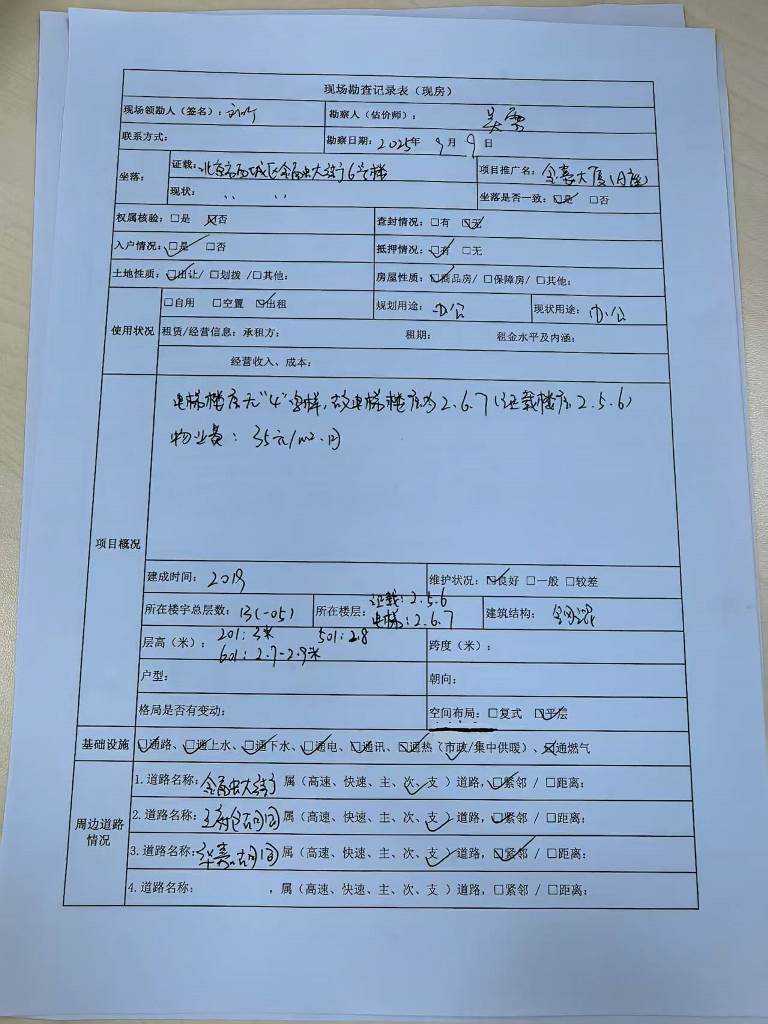 现场勘查记录表（现房）
现场领勘人（签名）： 勘察人（估价师）：吴雪
联系方式： 勘察日期：2025年 9月 9日
坐落： 证载：北京市西城区金融大街6号楼 项目推广名：金嘉大厦(A座)
现状：〃 〃 坐落是否一致：☑是 □否
权属核验：□是 ☒否 查封情况：□有 ☑无
入户情况：☑是 □否 抵押情况：☑有 □无
土地性质：☑出让/ □划拨 /□其他： 房屋性质：☑商品房/ □保障房/ □其他：
使用状况 □自用 □空置 ☑出租 规划用途：办公 现状用途：办公
租赁/经营信息：承租方： 租期： 租金水平及内涵：
经营收入、成本：
项目概况
电梯楼层无“4”字样，故电梯楼层为2.6.7（证载楼层2.5.6）
物业费：35元/m².月
建成时间：2019 维护状况：☑良好 □一般 □较差
所在楼宇总层数：13(-05) 所在楼层：证载：2.5.6 电梯：2.6.7 建筑结构：
层高（米）：201：3米 501：2.8 跨度（米）：
601：2.7-2.9米
户型： 朝向：
格局是否有变动： 空间布局：□复式 ☑平层
基础设施 ☑通路、☑通上水、☑通下水、☑通电、☑通讯、☑通热（市政/集中供暖）、☒通燃气
周边道路情况
1.道路名称：金融大街 属（高速、快速、主、次、支 ）道路，☑紧邻 / □距离：
2.道路名称：王府仓胡同 属（高速、快速、主、次、支 ）道路，☑紧邻 / □距离：
3.道路名称：华嘉胡同 属（高速、快速、主、次、支 ）道路，☑紧邻 / □距离：
4.道路名称： ，属（高速、快速、主、次、支 ）道路，□紧邻 / □距离：